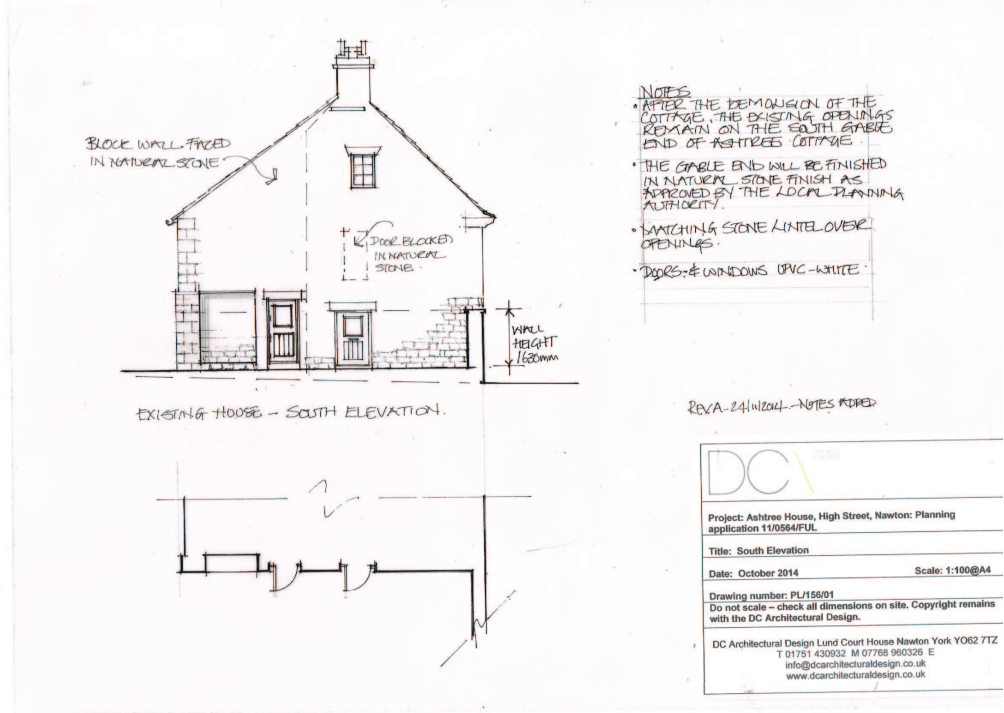 BLOCK WALL FACED
IN NATURAL STONE
DOOR BLOCKED
IN NATURAL
STONE.
WALL
HEIGHT
1620mm
EXISTING HOUSE – SOUTH ELEVATION.
NOTES
• AFTER THE DEMOLISION OF THE
COTTAGE, THE EXISTING OPENINGS
REMAIN ON THE SOUTH GABLE
END OF ASHTREE COTTAGE.
• THE GABLE END WILL BE FINISHED
IN NATURAL STONE FINISH AS
APPROVED BY THE LOCAL PLANNING
AUTHORITY.
• MATCHING STONE LINTEL OVER
OPENINGS.
• DOORS & WINDOWS UPVC – WHITE.
REV.A – 24/11/2014 – NOTES ADDED
DC
Project: Ashtree House, High Street, Nawton: Planning
application 11/0564/FUL
Title: South Elevation
Date: October 2014 Scale: 1:100@A4
Drawing number: PL/156/01
Do not scale – check all dimensions on site. Copyright remains
with the DC Architectural Design.
DC Architectural Design Lund Court House Nawton York YO62 7TZ
T 01751 430932 M 07768 960326 E
info@dcarchitecturaldesign.co.uk
www.dcarchitecturaldesign.co.uk